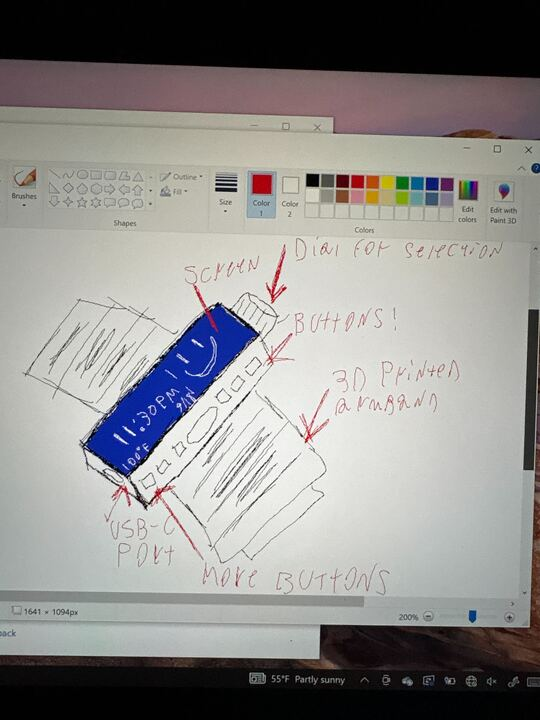 Brushes
Outline
Fill
Shapes
Size
Color 1
Color 2
Colors
Edit colors
Edit with Paint 3D
Dial for selection
Screen
Buttons!
3D Printed
armband
11:30PM
100°F
USB-C
Port
More Buttons
1641 × 1094px
200%
back
55°F Partly sunny